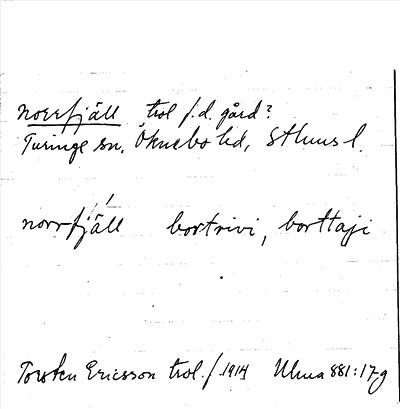 norrfjäll trol f.d. gård?
Turinge sn. Öknebo hd, Sthlms l.
norrfjäll bortrivi, borttaji
Torsten Ericsson trol. / 1914 Ulma 881:17g